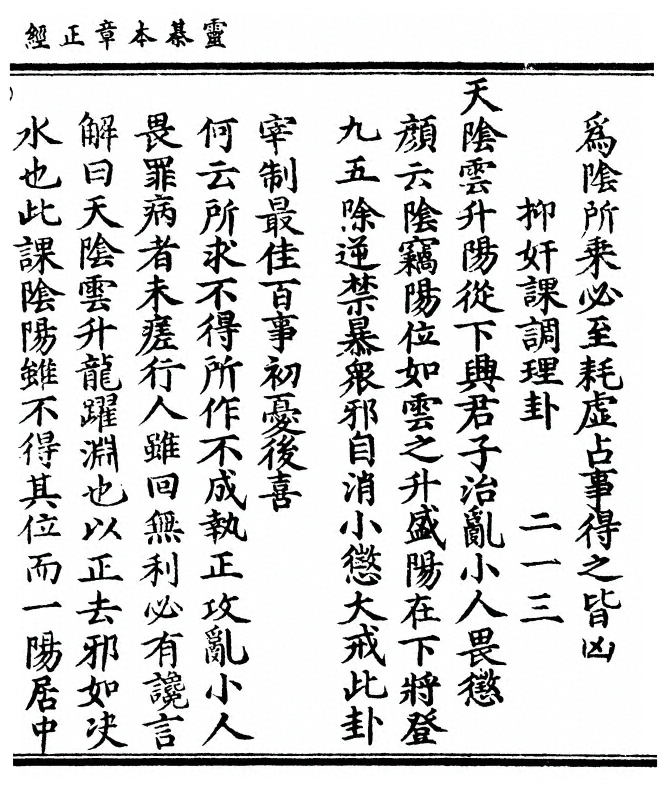 靈棊本章正經
為陰所乘必至耗虛占事得之皆凶
抑奸課調理卦 二一三
天陰雲升陽從下興君子治亂小人畏懲
顏云陰竊陽位如雲之升盛陽在下將登
九五除逆禁暴衆邪自消小懲大戒此卦
宰制最佳百事初憂後喜
何云所求不得所作不成執正攻亂小人
畏罪病者未瘥行人雖回無利必有讒言
解曰天陰雲升龍躍淵也以正去邪如决
水也此課陰陽雖不得其位而一陽居中